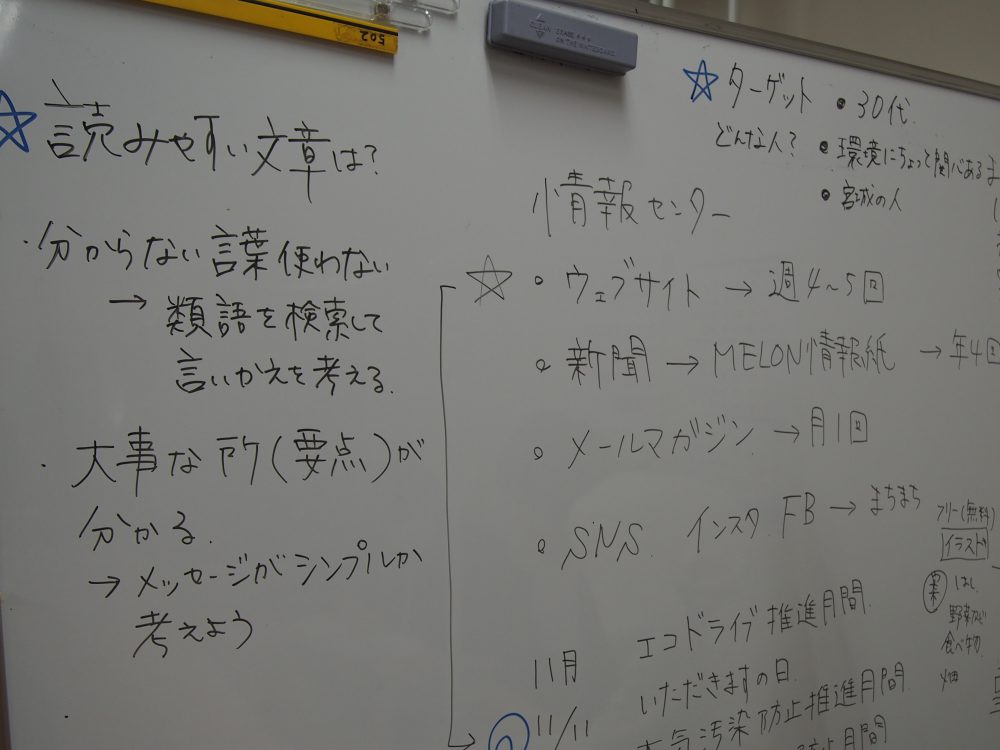 502
☆読みやすい文章は?
・分からない言葉使わない
→ 類語を検索して
言いかえを考える.
・大事な所(要点)が
分かる.
→ メッセージがシンプルか
考えよう
☆ターゲット ・30代.
どんな人? ・環境にちょっと関心ある
・宮城の人
情報センター
☆ ・ウェブサイト → 週4~5回
・新聞 → MELON情報紙 → 年4回
・メールマガジン → 月1回
・SNS. インスタ FB → まちまち
フリー(無料)
イラスト
はし
野菜など
食べ物
畑
11月 エコドライブ推進月間.
いただきますの日.
11/11
大気汚染防止推進月間
月間